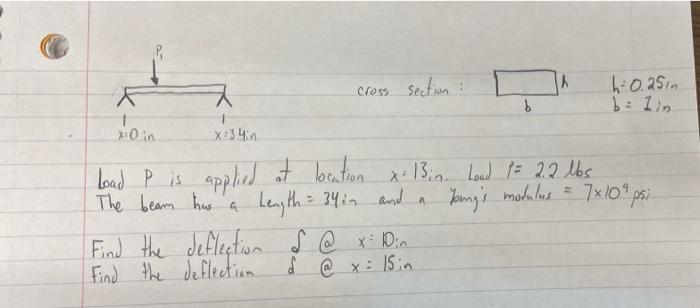 P₁
cross section :
h
b
h=0.25in
b= 1in
x=0 in
x=34in
Load P is applied at location x=13in. Load P= 2.2 lbs
The beam has a Length = 34in and a Young's modulus = 7x10⁹ psi
Find the deflection δ @ x=10in
Find the deflection δ @ x=15in